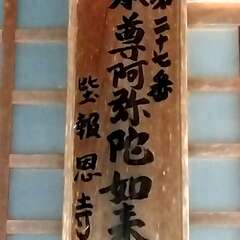 第二十七番
本尊阿弥陀如来
紫報恩寺